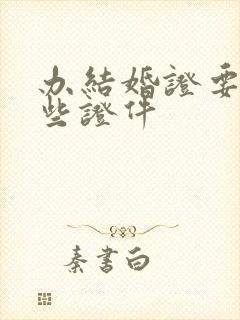 办結婚證要
些證件
秦書白